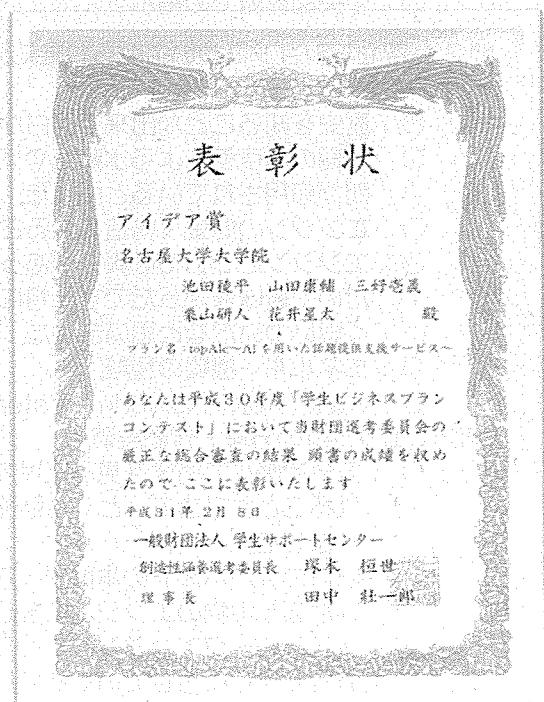 表彰状
アイデア賞
名古屋大学大学院
池田稜平 山田康輔 三好壱義
栗山研人 花井星太 殿
プラン名:topAIc～AIを用いた話題提供支援サービス～
あなたは平成30年度「学生ビジネスプラン
コンテスト」において当財団選考委員会の
厳正な総合審査の結果 頭書の成績を収め
たので ここに表彰いたします
平成31年 2月 8日
一般財団法人 学生サポートセンター
創造性涵養選考委員長 塚本 恒世
理事長 田中 壮一郎